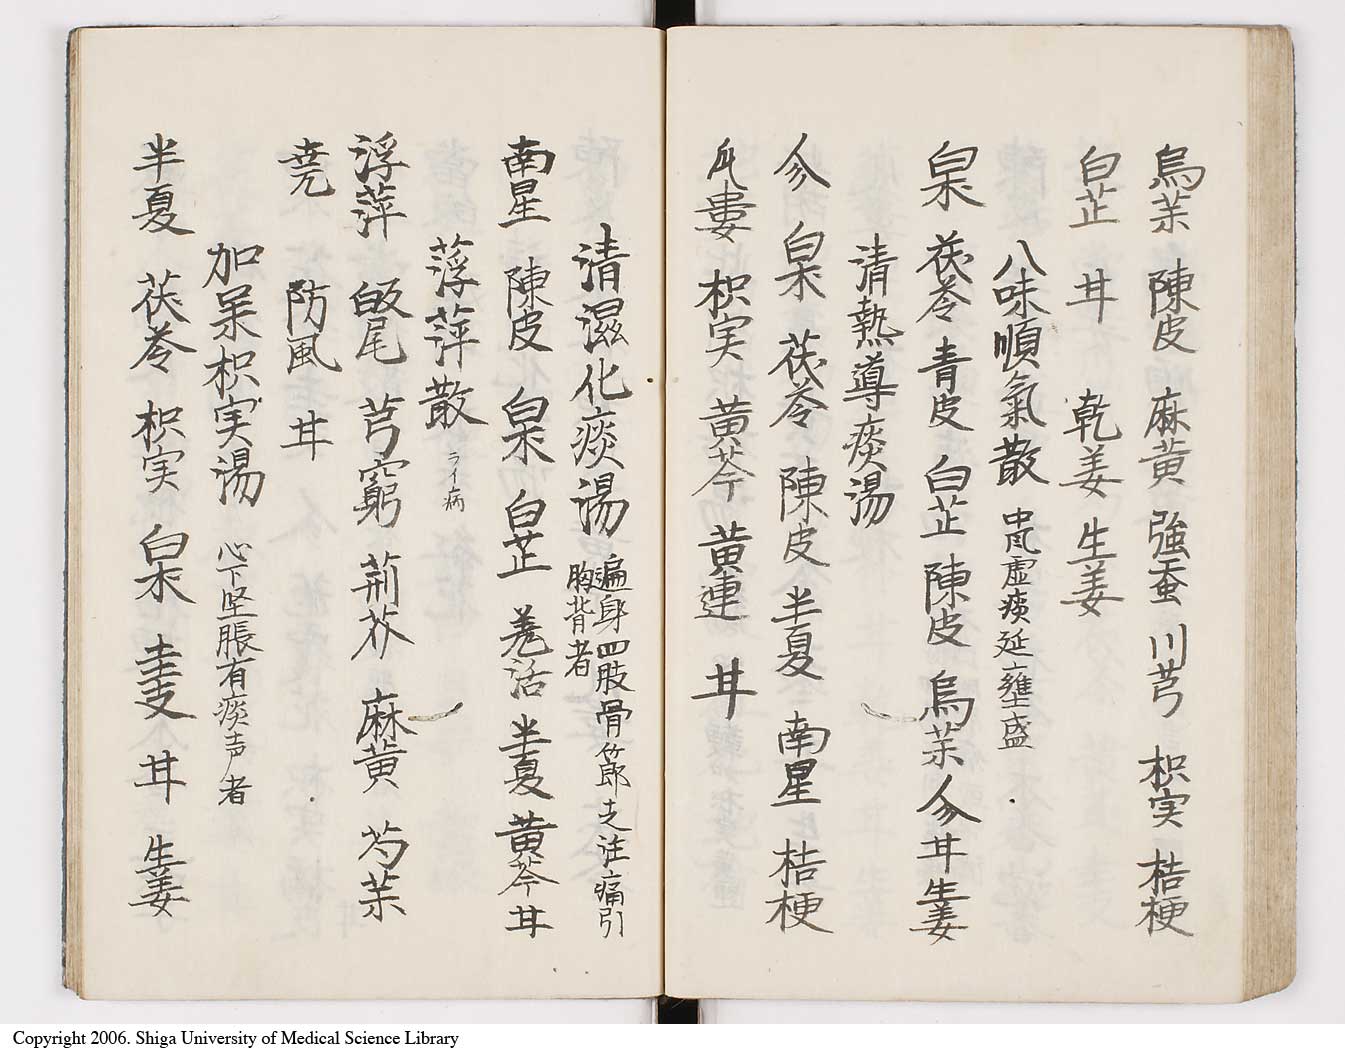 烏茱 陳皮 麻黄 強蚕 川芎 枳実 桔梗
白芷 甘 乾姜 生姜
八味順氣散 中風虚痰延壅盛
白朮 茯苓 青皮 白芷 陳皮 烏茱 参 甘 生姜
清熱導痰湯
参 白朮 茯苓 陳皮 半夏 南星 桔梗
瓜蔞 枳実 黄芩 黄連 甘
清濕化痰湯 遍身四肢骨節走注痛引
胸背者
南星 陳皮 白朮 白芷 羌活 半夏 黄芩 甘
浮萍散 ライ病
浮萍 皈尾 芎窮 荊芥 麻黄 芍茱
尭 防風 甘
加朮枳実湯 心下坚脹有痰声者
半夏 茯苓 枳実 白朮 圭支 甘 生姜
Copyright 2006. Shiga University of Medical Science Library